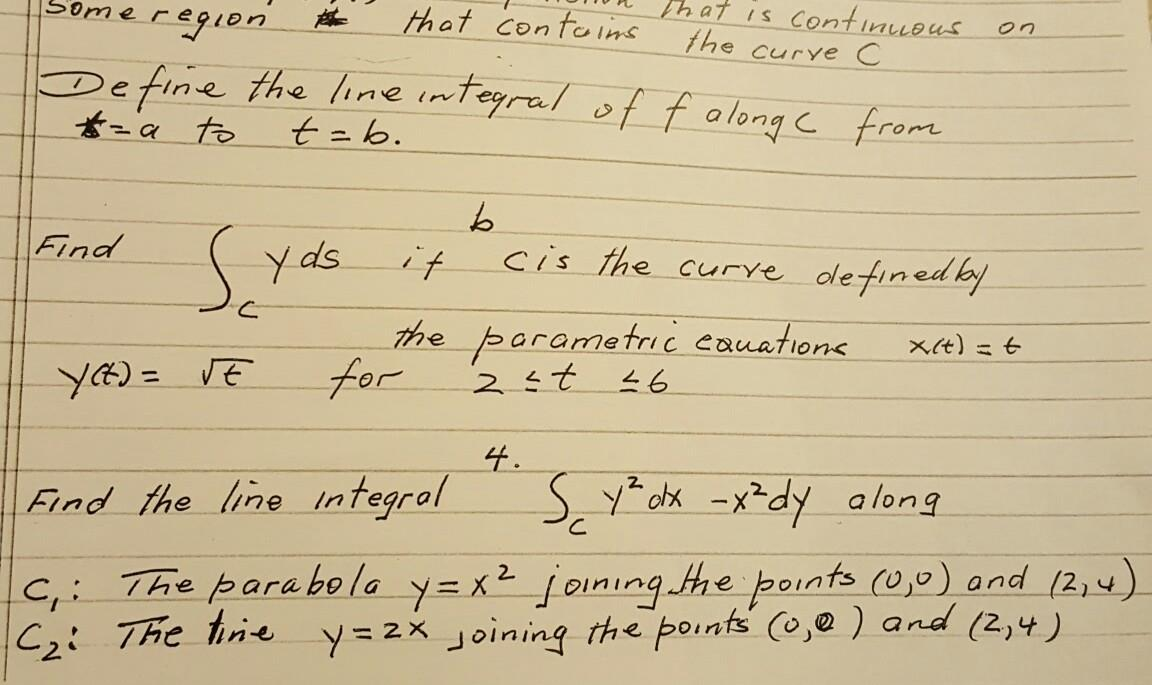 some region that contains that is continuous on
the curve C
Define the line integral of f along C from
t=a to t=b.
b
Find ∫_C y ds if C is the curve defined by
the parametric equations x(t) = t
y(t) = √t for 2 ≤ t ≤ 6
4.
Find the line integral ∫_C y² dx - x² dy along
C₁: The parabola y = x² joining the points (0,0) and (2,4)
C₂: The line y = 2x joining the points (0,0) and (2,4)